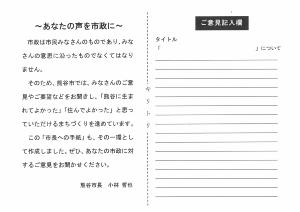 ～あなたの声を市政に～
市政は市民みなさんのものであり、みな
さんの意思に沿ったものでなくてはなり
ません。
そのため、熊谷市では、みなさんのご意
見やご要望などをお聞きし、「熊谷に生ま
れてよかった」「住んでよかった」と思っ
ていただけるまちづくりを進めています。
この「市長への手紙」も、その一環とし
て作成しました。ぜひ、あなたの市政に対
するご意見をお聞かせください。
熊谷市長 小林 哲也
キリトリ
ご意見記入欄
タイトル
「 」について